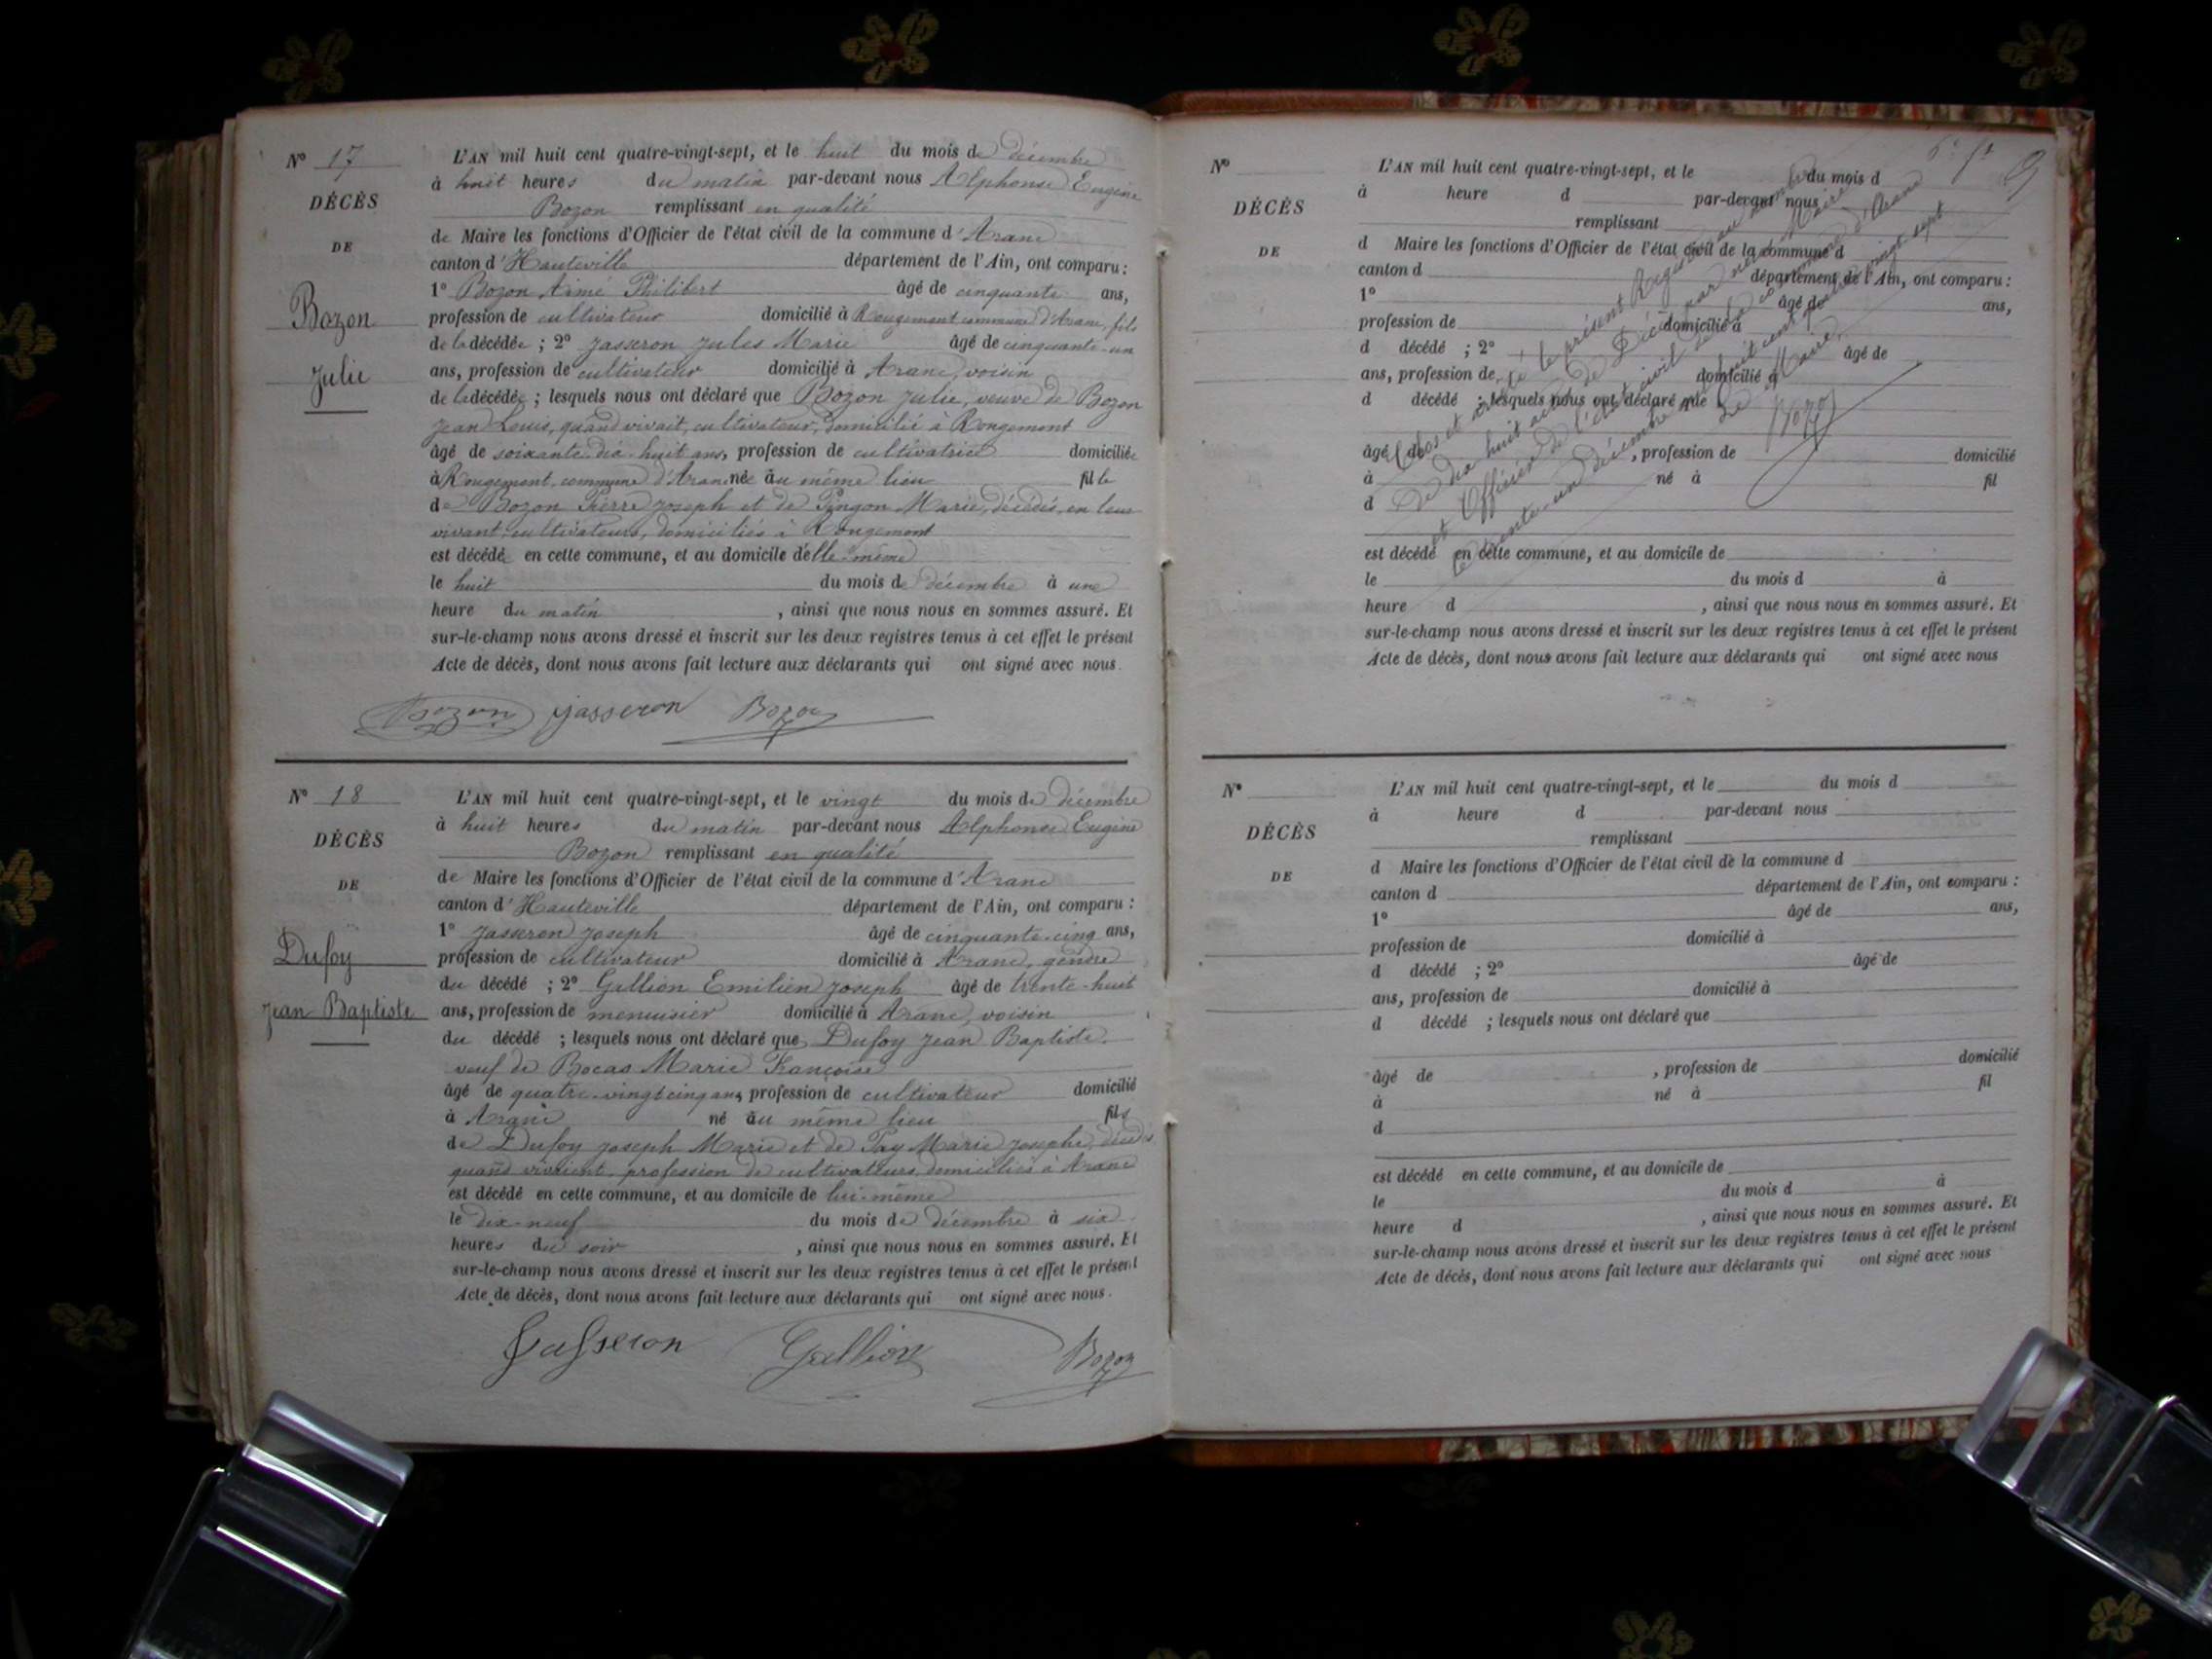 N° 17
DÉCÈS
DE
Bozon
Julie
L'AN mil huit cent quatre-vingt-sept, et le huit du mois de décembre
à huit heures du matin par-devant nous Alphonse Eugène
Bozon remplissant en qualité
de Maire les fonctions d'Officier de l'état civil de la commune d'Aranc
canton d'Hauteville département de l'Ain, ont comparu :
1° Bozon Aimé Philibert âgé de cinquante ans,
profession de cultivateur domicilié à Rougemont commune d'Aranc, fils
de la décédée ; 2° Jasseron Jules Marie âgé de cinquante-un
ans, profession de cultivateur domicilié à Aranc, voisin
de la décédée ; lesquels nous ont déclaré que Bozon Julie, veuve de Bozon
Jean Louis, quand vivait, cultivateur, domicilié à Rougemont
âgé de soixante-dix-huit ans, profession de cultivatrice domiciliée
à Rougemont, commune d'Aranc née au même lieu fille
de Bozon Pierre Joseph et de Pingon Marie, décédés, en leur
vivant, cultivateurs, domiciliés à Rougemont
est décédée en cette commune, et au domicile d'elle-même
le huit du mois de décembre à une
heure du matin , ainsi que nous nous en sommes assuré. Et
sur-le-champ nous avons dressé et inscrit sur les deux registres tenus à cet effet le présent
Acte de décès, dont nous avons fait lecture aux déclarants qui ont signé avec nous.
Bozon Jasseron Bozon
N° 18
DÉCÈS
DE
Dufoy
Jean Baptiste
L'AN mil huit cent quatre-vingt-sept, et le vingt du mois de décembre
à huit heures du matin par-devant nous Alphonse Eugène
Bozon remplissant en qualité
de Maire les fonctions d'Officier de l'état civil de la commune d'Aranc
canton d'Hauteville département de l'Ain, ont comparu :
1° Jasseron Joseph âgé de cinquante-cinq ans,
profession de cultivateur domicilié à Aranc, gendre
du décédé ; 2° Gallion Emilien Joseph âgé de trente-huit
ans, profession de menuisier domicilié à Aranc, voisin
du décédé ; lesquels nous ont déclaré que Dufoy Jean Baptiste
veuf de Bocas Marie Françoise
âgé de quatre-vingt cinq ans, profession de cultivateur domicilié
à Aranc né au même lieu fils
de Dufoy Joseph Marie et de Pay Marie Josephe, décédés
quand vivaient, profession de cultivateurs, domiciliés à Aranc
est décédé en cette commune, et au domicile de lui-même
le dix-neuf du mois de décembre à six
heures du soir , ainsi que nous nous en sommes assuré. Et
sur-le-champ nous avons dressé et inscrit sur les deux registres tenus à cet effet le présent
Acte de décès, dont nous avons fait lecture aux déclarants qui ont signé avec nous.
Jasseron Gallion Bozon
N°
DÉCÈS
DE
L'AN mil huit cent quatre-vingt-sept, et le du mois d
à heure d par-devant nous
remplissant
d Maire les fonctions d'Officier de l'état civil de la commune d
canton d département de l'Ain, ont comparu :
1° âgé de ans,
profession de domicilié à
d décédé ; 2° âgé de
ans, profession de domicilié à
d décédé ; lesquels nous ont déclaré que
âgé de , profession de domicilié
à né à fil
d
est décédé en cette commune, et au domicile de
le du mois d à
heure d , ainsi que nous nous en sommes assuré. Et
sur-le-champ nous avons dressé et inscrit sur les deux registres tenus à cet effet le présent
Acte de décès, dont nous avons fait lecture aux déclarants qui ont signé avec nous
Clos et arrêté le présent Registre au nombre
De dix huit actes de Décès par nous Maire
et Officier de l'état civil de la commune d'Aranc
le trente-un décembre mil huit cent quatre vingt-sept
Le Maire,
Bozon
N°
DÉCÈS
DE
L'AN mil huit cent quatre-vingt-sept, et le du mois d
à heure d par-devant nous
remplissant
d Maire les fonctions d'Officier de l'état civil de la commune d
canton d département de l'Ain, ont comparu :
1° âgé de ans,
profession de domicilié à
d décédé ; 2° âgé de
ans, profession de domicilié à
d décédé ; lesquels nous ont déclaré que
âgé de , profession de domicilié
à né à fil
d
est décédé en cette commune, et au domicile de
le du mois d à
heure d , ainsi que nous nous en sommes assuré. Et
sur-le-champ nous avons dressé et inscrit sur les deux registres tenus à cet effet le présent
Acte de décès, dont nous avons fait lecture aux déclarants qui ont signé avec nous